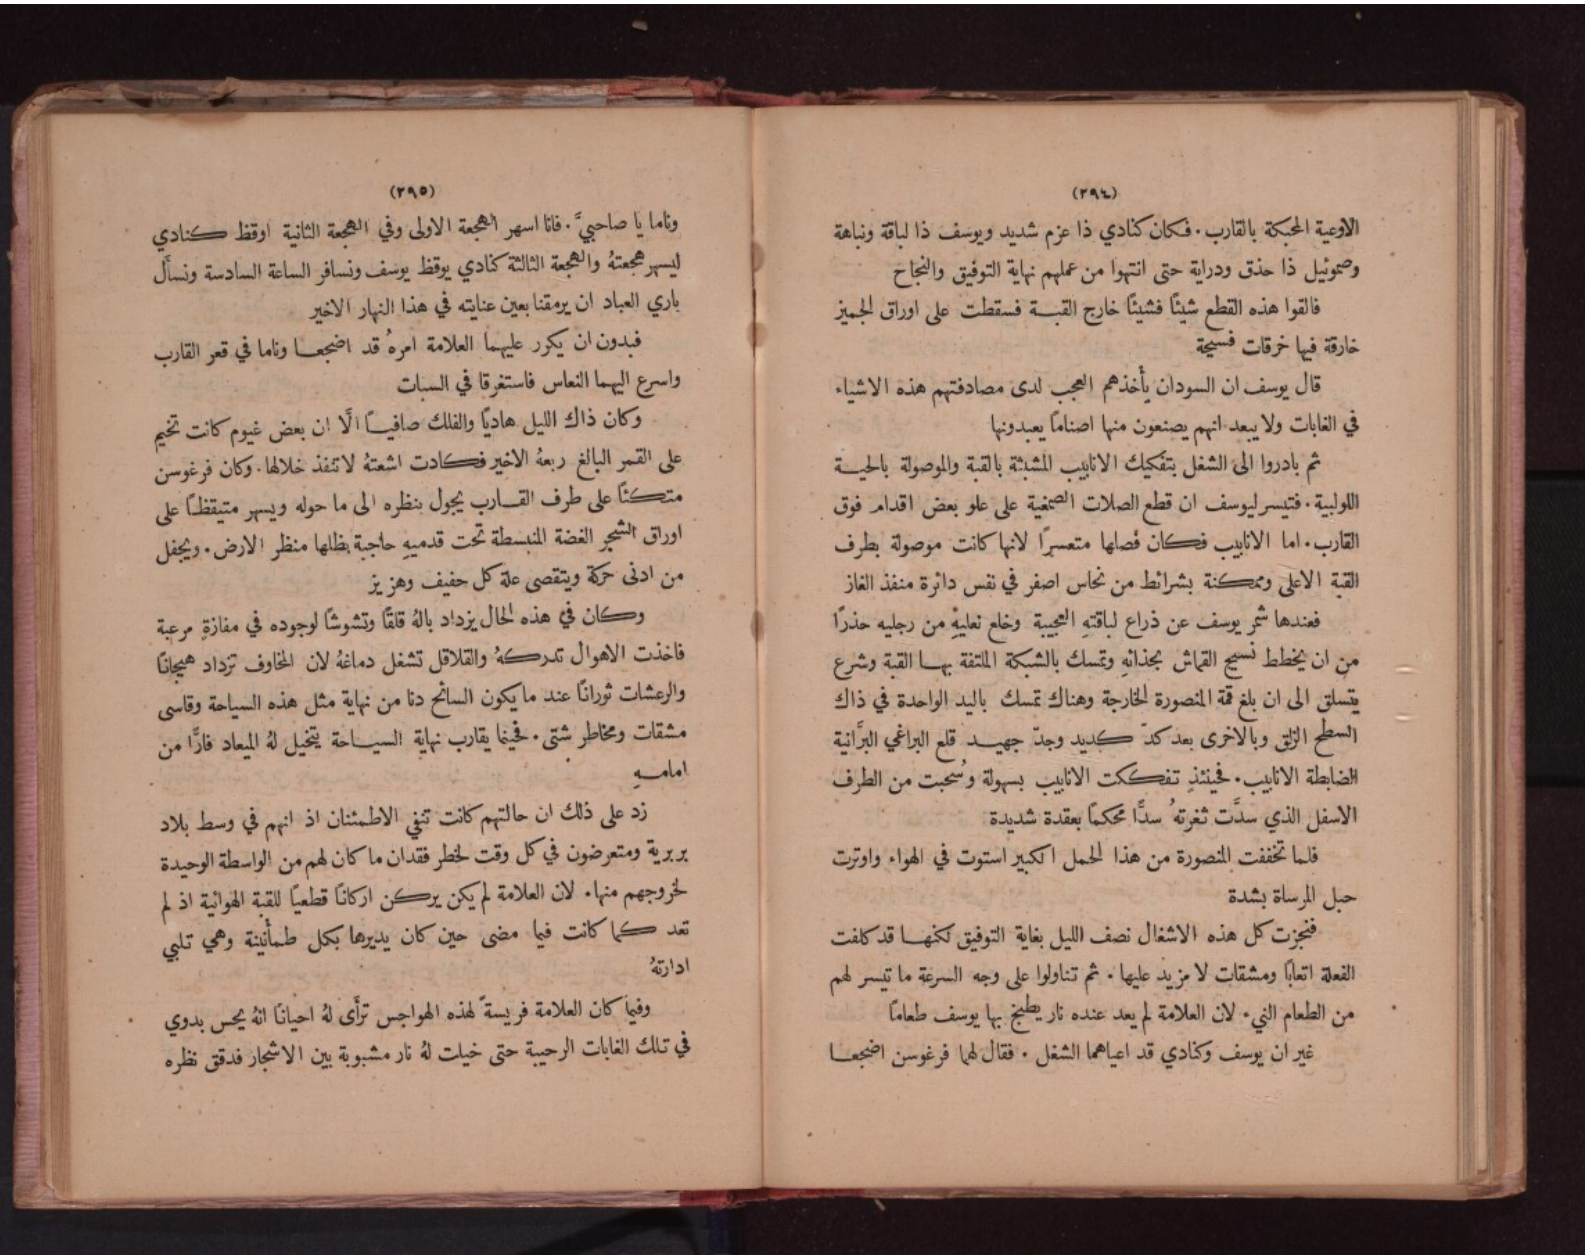 (٢٩٤)
الاوعية المحبكة بالقارب. فكان كنادي ذا عزم شديد ويوسف ذا لباقة ونباهة
وصموئيل ذا حذق ودراية حتى انتهوا من عملهم نهاية التوفيق والنجاح
فالقوا هذه القطع شيئًا فشيئًا خارج القبة فسقطت على اوراق الجميز
خارقة فيها خرقات فسيحة
قال يوسف ان السودان يأخذهم العجب لدى مصادفتهم هذه الاشياء
في الغابات ولا يبعد انهم يصنعون منها اصنامًا يعبدونها
ثم بادروا الى الشغل بتفكيك الانابيب المشبثة بالقبة والموصولة بالحية
اللولبية. فتيسر ليوسف ان قطع الصلات الصمغية على علو بعض اقدام فوق
القارب. اما الانابيب فكان فصلها متعسرًا لانها كانت موصولة بطرف
القبة الاعلى وممكنة بشرائط من نحاس اصفر في نفس دائرة منفذ الغاز
فعندها شمر يوسف عن ذراع لباقتهِ العجيبة وخلع نعليهِ من رجليه حذرًا
من ان يخطط نسيج القماش بحذائهِ وتمسك بالشبكة الملتفة بها القبة وشرع
يتسلق الى ان بلغ قمة المنصورة الخارجة وهناك تمسك باليد الواحدة في ذاك
السطح الزلق وبالاخرى بعد كدّ كديد وجدّ جهيد قلع البراغي البرَّانية
الضابطة الانابيب. فحينئذٍ تفككت الانابيب بسهولة وسُحبت من الطرف
الاسفل الذي سدَّت ثغرتهُ سدًّا محكمًا بعقدة شديدة
فلما تخففت المنصورة من هذا الحمل الكبير استوت في الهواء واوترت
حبل المرساة بشدة
فنجزت كل هذه الاشغال نصف الليل بغاية التوفيق لكنها قد كلفت
الفعلة اتعابًا ومشقات لا مزيد عليها. ثم تناولوا على وجه السرعة ما تيسر لهم
من الطعام النيء لان العلامة لم يعد عنده نار يطبخ بها يوسف طعامًا
غير ان يوسف وكنادي قد اعياهما الشغل. فقال لهما فرغوسن اضجعا
(٢٩٥)
وناما يا صاحبيَّ. فانا اسهر الهجعة الاولى وفي الهجعة الثانية اوقظ كنادي
ليسهر هجعتهُ والهجعة الثالثة كنادي يوقظ يوسف ونسافر الساعة السادسة ونسأل
باري العباد ان يرمقنا بعين عنايته في هذا النهار الاخير
فبدون ان يكرر عليهما العلامة امرهُ قد اضجعا وناما في قعر القارب
واسرع اليهما النعاس فاستغرقا في السبات
وكان ذاك الليل هاديًا والفلك صافيًا الَّا ان بعض غيوم كانت تخيم
على القمر البالغ ربعهُ الاخير فكادت اشعتهُ لا تنفذ خلالها. وكان فرغوسن
متكئًا على طرف القارب يجول بنظره الى ما حوله ويسهر متيقظًا على
اوراق الشجر الغضة المنبسطة تحت قدميهِ حاجبة بظلها منظر الارض. ويجفل
من ادنى حركة ويتقصى علة كل حفيف وهزيز
وكان في هذه الحال يزداد بالهُ قلقًا وتشوشًا لوجوده في مفازةٍ مرعبة
فاخذت الاهوال تدركهُ والقلاقل تشغل دماغهُ لان المخاوف تزداد هيجانًا
والرعشات ثورانًا عند ما يكون السائح دنا من نهاية مثل هذه السياحة وقاسى
مشقات ومخاطر شتى. فحينما يقارب نهاية السياحة يتخيل لهُ الميعاد فارًّا من
امامهِ
زد على ذلك ان حالتهم كانت تنفي الاطمئنان اذ انهم في وسط بلاد
بربرية ومتعرضون في كل وقت لخطر فقدان ما كان لهم من الواسطة الوحيدة
لخروجهم منها. لان العلامة لم يكن يركن اركانًا قطعيًا للقبة الهوائية اذ لم
تعد كما كانت فيما مضى حين كان يديرها بكل طمأنينة وهي تلبي
ادارتهُ
وفيما كان العلامة فريسةً لهذه الهواجس ترأى لهُ احيانًا انهُ يحس بدوي
في تلك الغابات الرحيبة حتى خيلت لهُ نار مشبوبة بين الاشجار فدقق نظره